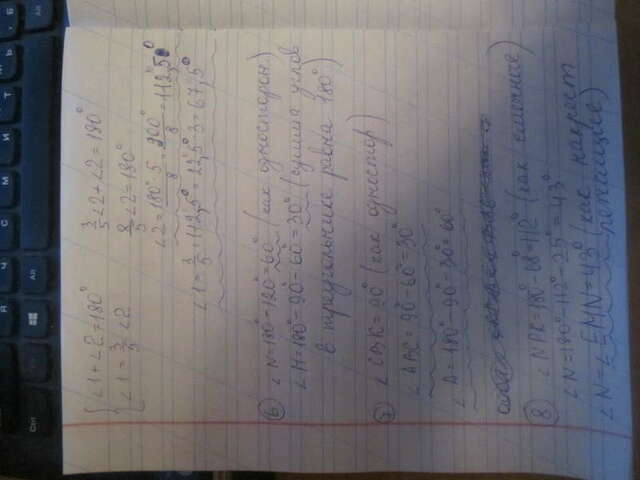 ∠1 + ∠2 = 180°
∠1 = 3/5 ∠2
3/5 ∠2 + ∠2 = 180°
8/5 ∠2 = 180°
∠2 = 180°·5/8 = 900°/8 = 112,5°
∠1 = 3/5 · 112,5° = 22,5°·3 = 67,5°
6 ∠N = 180° - 120° = 60° (как односторон.)
∠M = 180° - 90° - 60° = 30° (сумма углов
в треугольнике равна 180°)
7 ∠CBK = 90° (как одностор)
∠ABC = 90° - 60° = 30°
∠A = 180° - 90° - 30° = 60°
8 ∠NPK = 180° - 68° = 112° (как смежные)
∠N = 180° - 112° - 25° = 43°
∠N = ∠EMN = 43° (как накрест
лежащие)